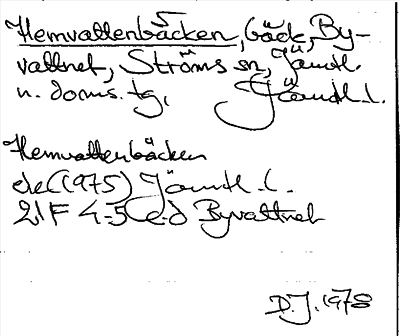 Hemvattenbäcken, bäck, By-
vattnet, Ströms sn, Jämtl.
n. doms. tg, Jämtl. l.
Hemvattenbäcken
ek (1975) Jämtl. l.
21F 4-5 c-d Byvattnet
D.J. 1978